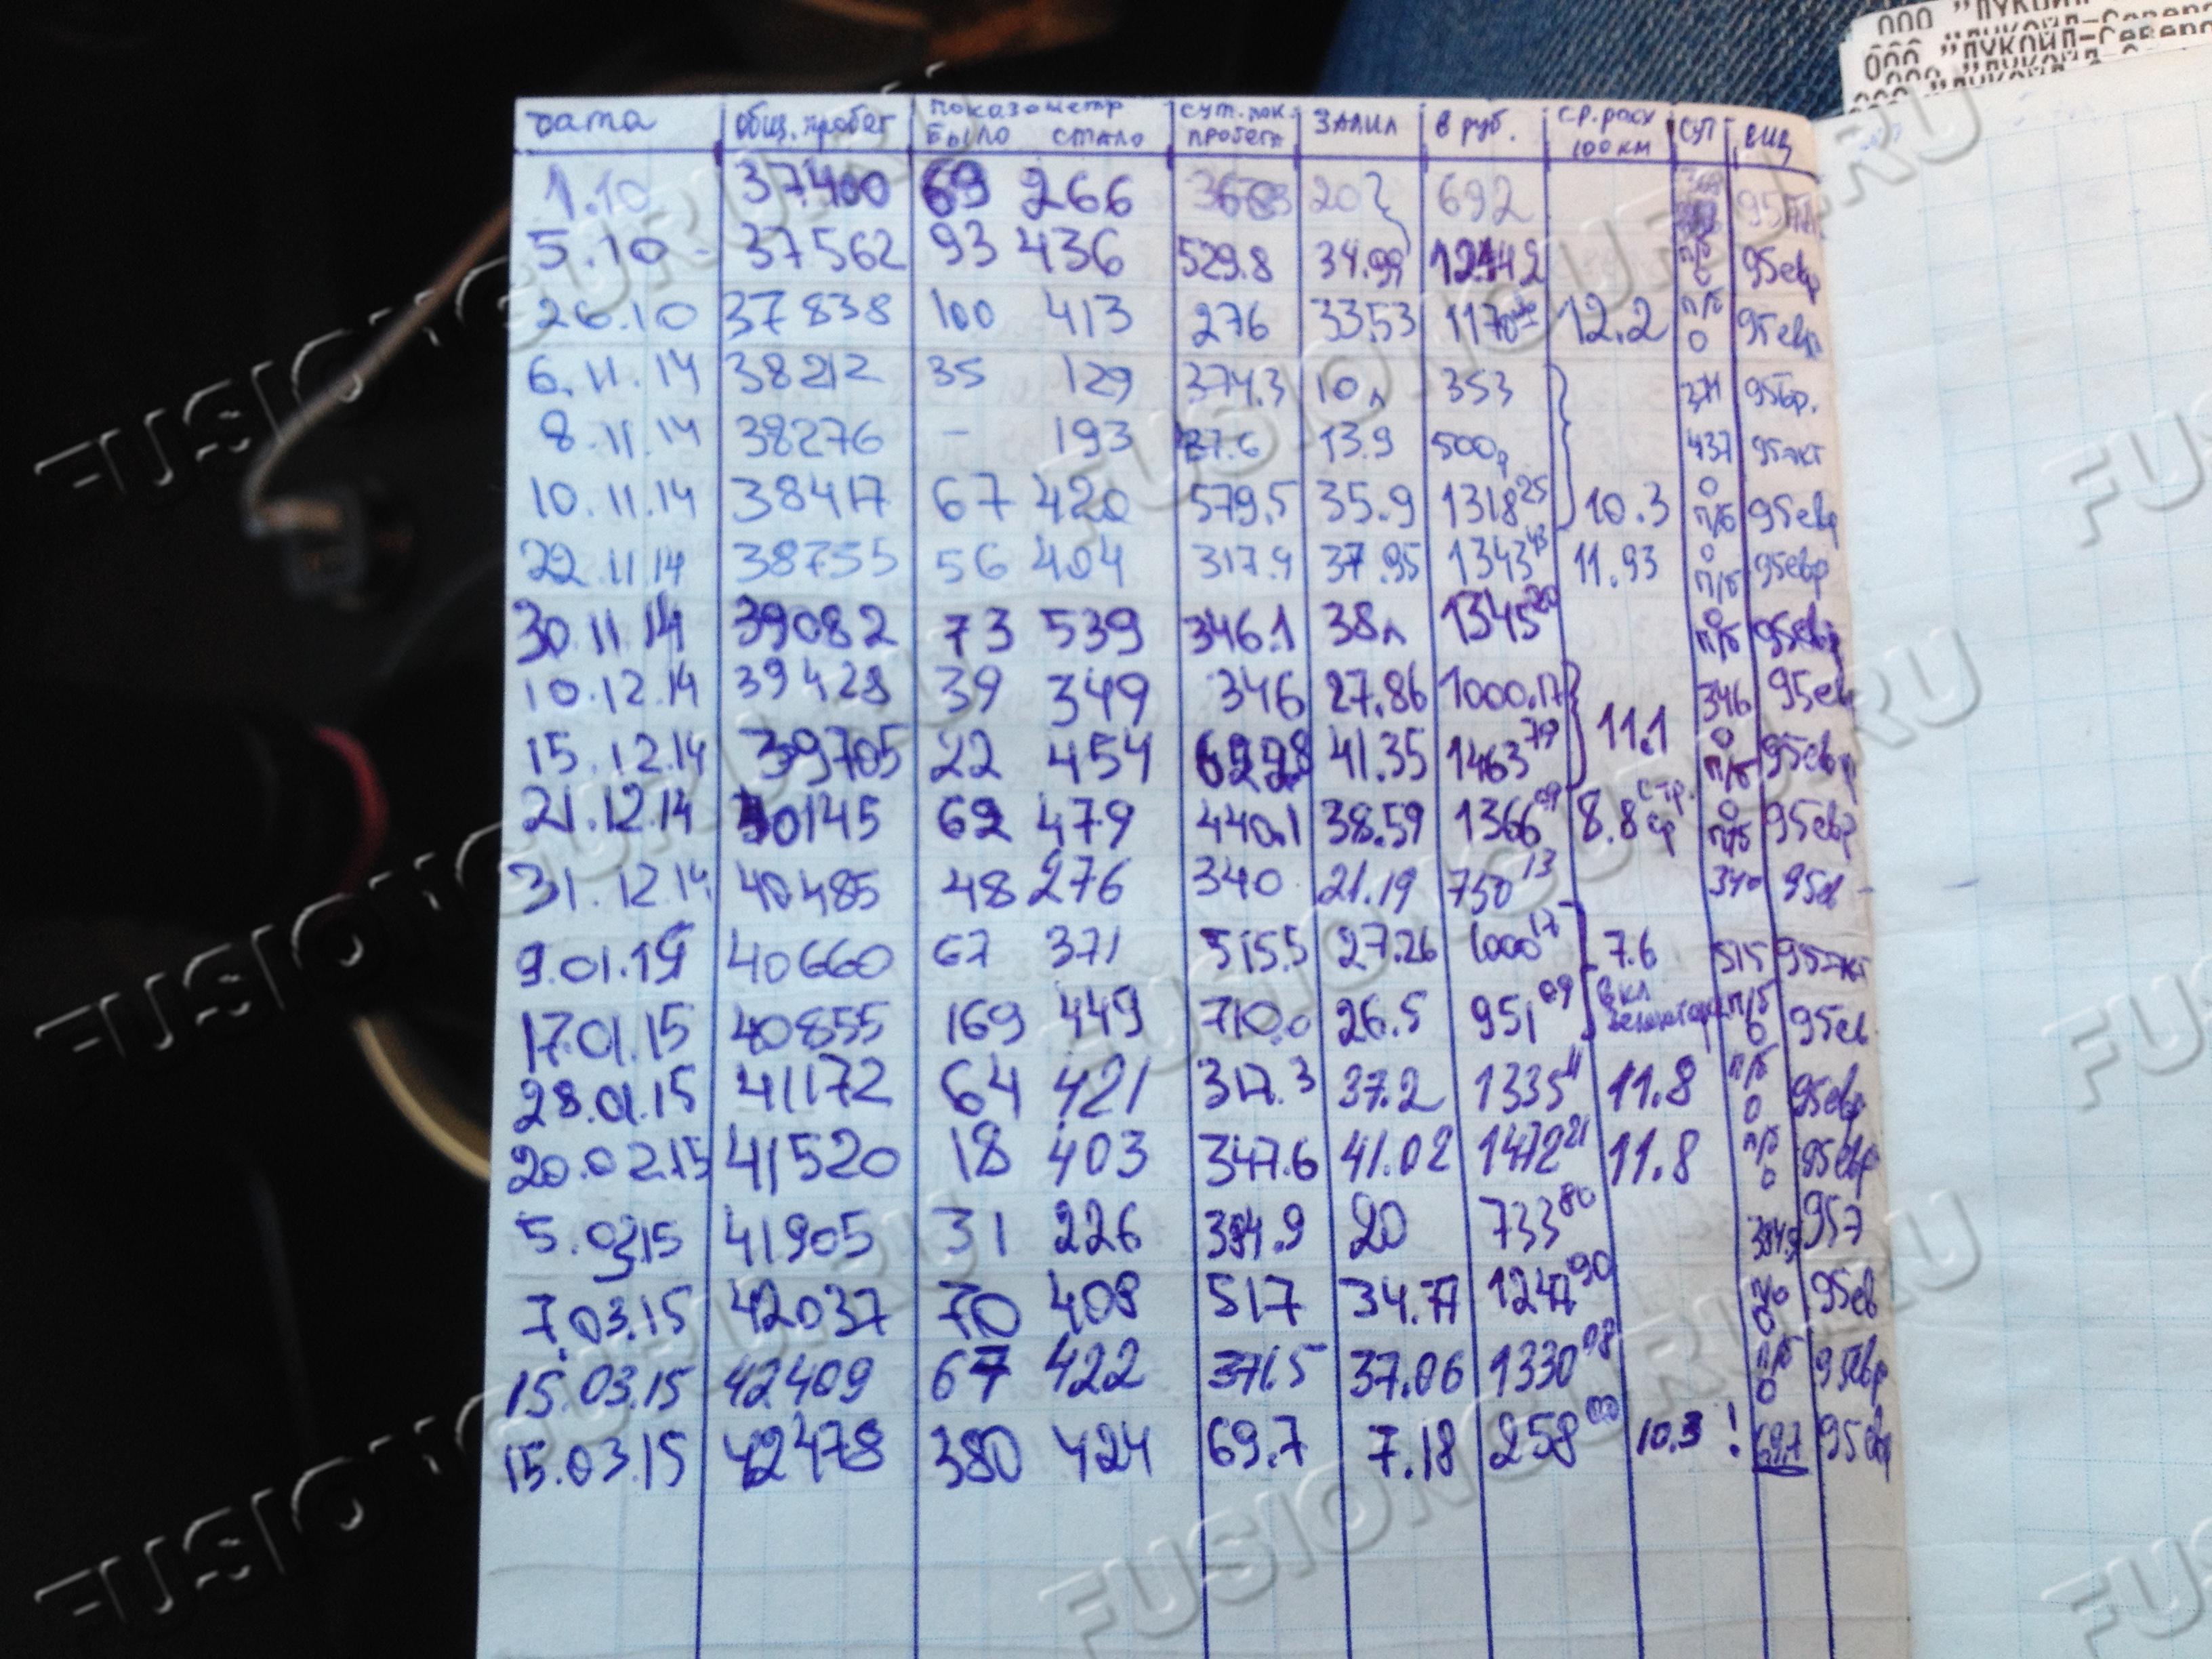 ООО "ЛУКОЙЛ-Северо
ООО "ЛУКОЙЛ-Северо
дата общ. пробег показометр было стало сут. пок. пробега залил в руб. ср. расх 100 км СУТ вид
1.10 37400 69 266 20 692
5.10 - 37562 93 436 529.8 34.99 95евр
26.10 37838 100 413 276 33.53 12.2 п/б 0 95евр
6.11.14 38212 35 129 374.3 10 л 353 374
8.11.14 38276 - 193 13.9 500р 437 95экт
10.11.14 38417 67 420 579.5 35.9 1318 25 10.3 0 п/б 95евр
22.11.14 38755 56 404 317.9 37.95 1343 43 11.93 0 п/б 95евр
30.11.14 39082 73 539 346.1 38л 1345 20 0 п/б 95евр
10.12.14 39428 39 349 346 27.86 1000.17 346 95ев
15.12.14 39705 22 454 622.8 41.35 1463 79 11.1 0 п/б 95евр
21.12.14 40145 62 479 440.1 38.59 1366 09 8.8 0 п/б 95евр
31.12.14 40485 48 276 340 21.19 750 13 340 95е
9.01.15 40660 67 371 515.5 27.26 1000 17 7.6 515 95экт
17.01.15 40855 169 449 710.0 26.5 951 09 вкл п/б 0 95ев
28.01.15 41172 64 421 317.3 37.2 1335 11 11.8 п/б 0 95евр
20.02.15 41520 18 403 347.6 41.02 1472 21 11.8 п/б 0 95евр
5.03.15 41905 31 226 384.9 20 733 80 384.9 95э
7.03.15 42037 70 408 517 34.77 1247 90 п/б 0 95ев
15.03.15 42409 67 422 371.5 37.06 1330 08 п/б 0 95евр
15.03.15 42478 380 424 69.7 7.18 258 00 10.3 ! 69.7 95евр
FUSIONGURU.RU